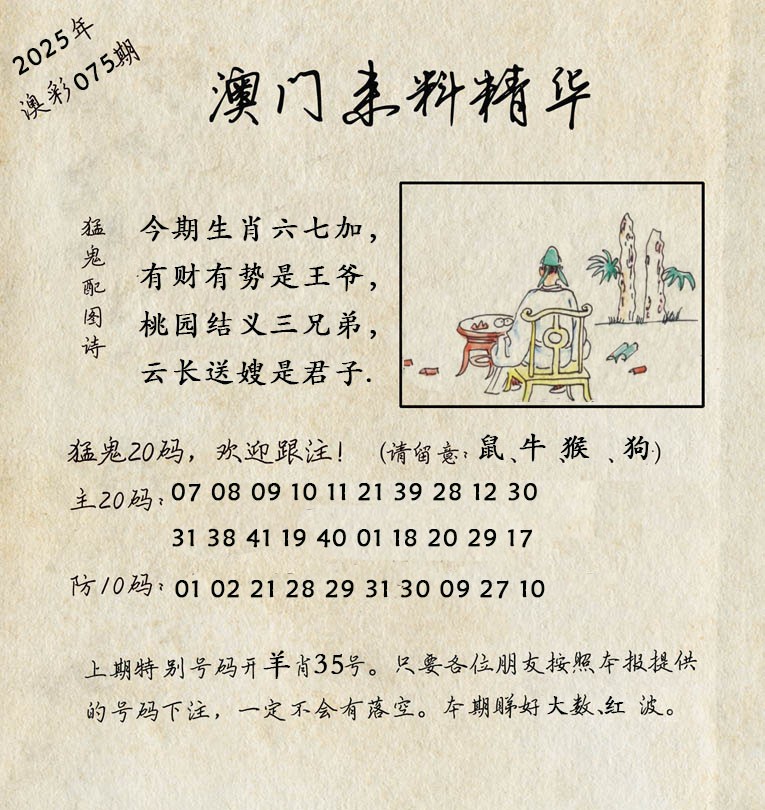 2025年
澳彩075期
澳门来料精华
猛鬼配图诗
今期生肖六七加，
有财有势是王爷，
桃园结义三兄弟，
云长送嫂是君子.
猛鬼20码，欢迎跟注！（请留意：鼠、牛、猴、狗）
主20码：07 08 09 10 11 21 39 28 12 30
31 38 41 19 40 01 18 20 29 17
防10码：01 02 21 28 29 31 30 09 27 10
上期特别号码开羊肖35号。只要各位朋友按照本报提供
的号码下注，一定不会有落空。本期睇好大数、红波。